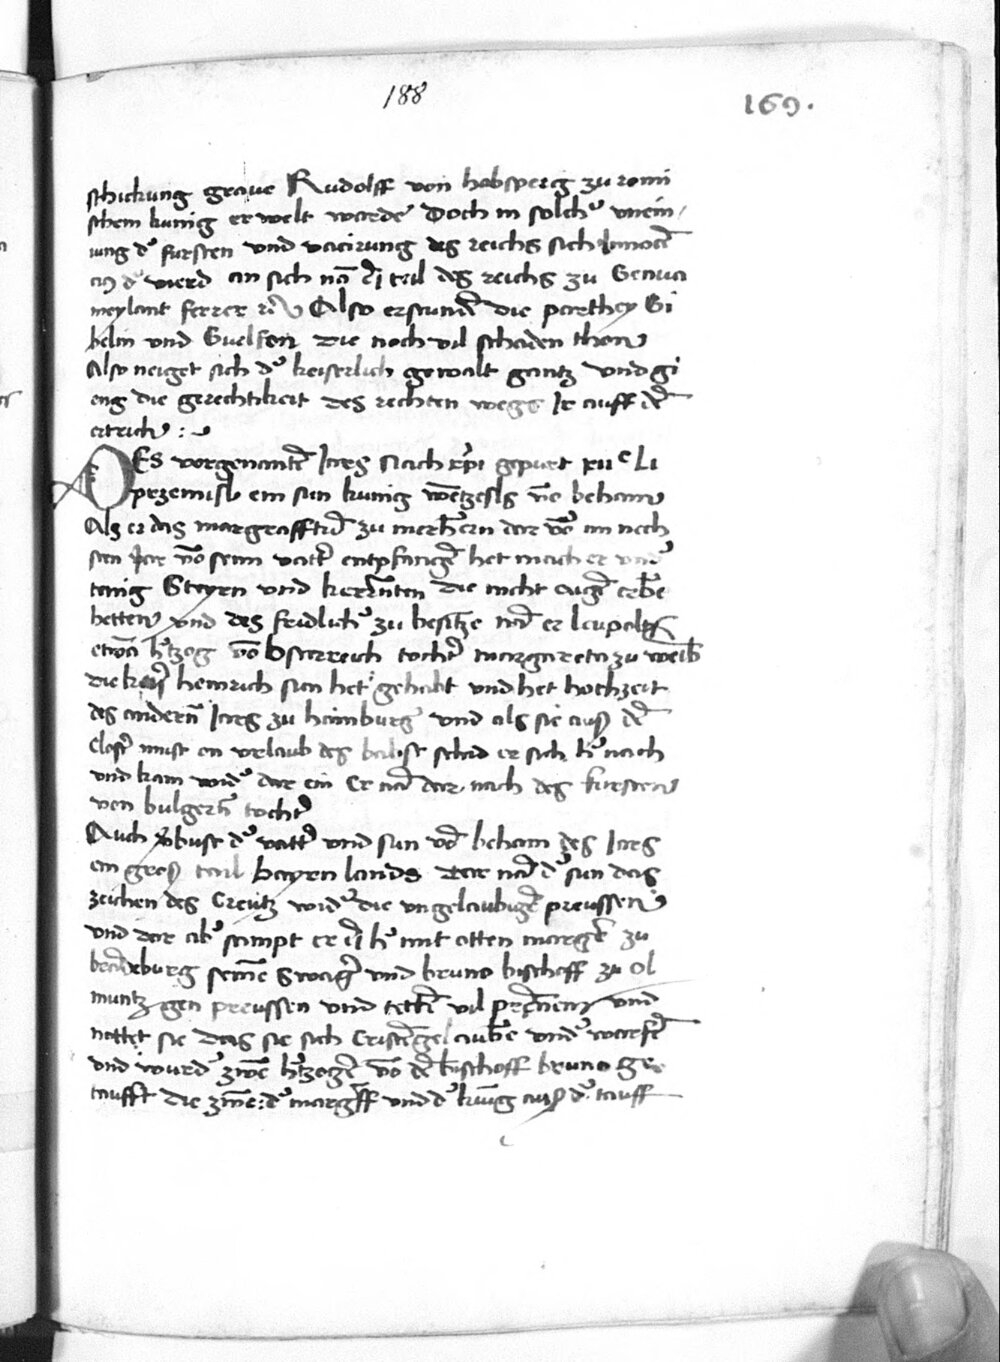 188
169.
schickung graue Rudolff von habsperg zu romi
schem kunig erwelt warde Doch in solch' vnein
iung d' fursten vnd vacirung des reichs sich Innocē
d' vierd an sich nā teil des reichs zu Genua
meylant ferrer Also erstundē die parthey Gi
belin vnd Guelfen die noch vil schaden thon
Also neiget sich d' keiserlich gewalt gantz vnd gi
eng die gerechtikeit des rechten wegs Ir auff dē
ertrich :
DEs vorgenantē Jares Nach xpi gepurt xiic Li
przemisl ein sun kunig wētzesls vō beham
Als er das margrafftū zu merhern dar vō im nech
sten Jar vō seim vatt' entpfangē het mach er vnd'
tenig Steyrn vnd kernten die nicht eugē erbē
hetten vnd des fridlich' zu besitzē nā er leupolts
etwā h'tzog vō Osterreich tocht' margareta zu weib
die keis' heinrich sun het gehabt vnd het hochzeit
des andern Jares zu haimburg vnd als sie auß dē
clost' must on vrlaub des babst schid er sich h' nach
vnd kam wid' dar ein Er nā dar nach des fursten
von bulgern tocht'
Auch d' vatt' vnd sun vō beham des Jars
ein groß tail Bayrn lands Dar nā d' sun das
zeichen des Creutz wid' die vngelaubigē preussen
vnd dar ab' sampt er h' mit otten margē zu
brādeburg seinē swag' vnd bruno bischoff zu Ol
muntz gen preussen vnd tettē vil vnd
nottet sie das sie sich Cristēgelaubē vnd' worfē
vnd wurdē zwē h'tzogē vō dē bischoff bruno ge
taufft die zwē: d' margff vnd d' kung auß d' tauff